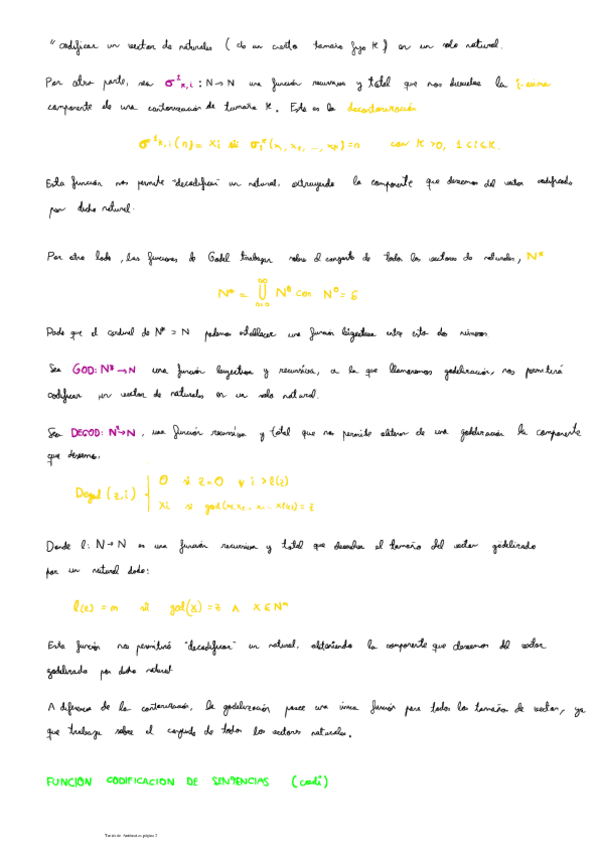 codificar un vector de naturales (de un cierto tamaño fijo K) en un solo natural.
Por otra parte, sea σ¹k,i : N→N una función recursiva y total que nos devuelve la i-ésima
componente de una cantorización de tamaño K. Esta es la decantorización
σ¹k,i (n) = Xi si σ₁ᵏ(x₁, x₂, ..., xk) = n con K>0, 1≤i≤K.
Esta función nos permite "decodificar" un natural, extrayendo la componente que deseemos del vector codificado
por dicho natural.
Por otro lado, las funciones de Godel trabajan sobre el conjunto de todos los vectores de naturales, N*
N* = ∞ ⋃ n=0 Nⁿ con N⁰ = ε
Dado que el cardinal de N* = N podemos establecer una función biyectiva entre estos dos números
Sea GOD: N* → N una función biyectiva y recursiva, a la que llamaremos godelización, nos permitirá
codificar un vector de naturales en un solo natural.
Sea DEGOD: N²→N, una función recursiva y total que nos permite obtener de una godelización la componente
que deseemos.
Degod (z,i) { 0 si z=0 v i>l(z)
Xi si god(x₁,x₂,..xi.. xl(z)) = z
Donde l: N→N es una función recursiva y total que devuelve el tamaño del vector godelizado
por un natural dado:
l(z) = m si god(x) = z ∧ X∈Nᵐ
Esta función nos permitirá "decodificar" un natural, obteniendo la componente que deseemos del vector
godelizado por dicho natural
A diferencia de la cantorización, la godelización posee una única función para todos los tamaños de vector, ya
que trabaja sobre el conjunto de todos los vectores naturales.
FUNCIÓN CODIFICACION DE SENTENCIAS (codi)